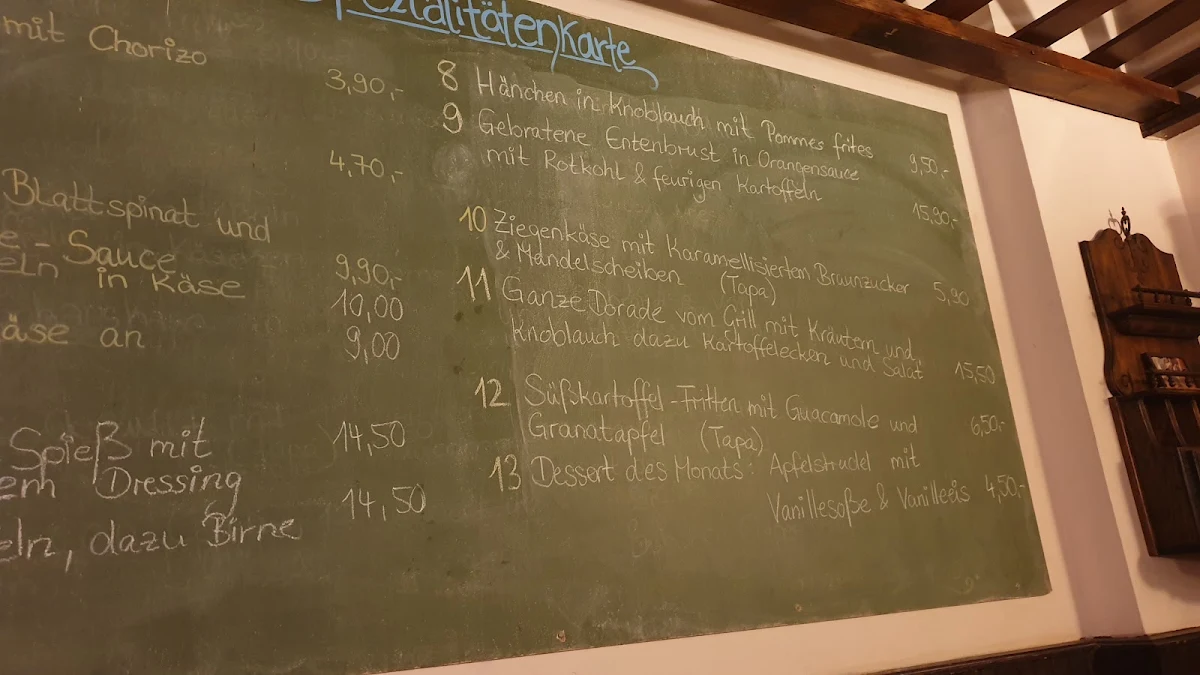 Spezialitätenkarte
mit Chorizo
3,90,-
4,70,-
Blattspinat und
e-Sauce
9,90,-
eln in Käse
10,00
äse an
9,00
Spieß mit
14,50
em Dressing
14,50
eln, dazu Birne
8 Hänchen in Knoblauch mit Pommes frites
9,50,-
9 Gebratene Entenbrust in Orangensauce
mit Rotkohl & feurigen Kartoffeln
15,90,-
10 Ziegenkäse mit Karamellisiertem Braunzucker
& Mandelscheiben (Tapa)
5,90
11 Ganze Dorade vom Grill mit Kräutern und
Knoblauch dazu Kartoffelecken und Salat
15,50
12 Süßkartoffel-Fritten mit Guacamole und
Granatapfel (Tapa)
6,50,-
13 Dessert des Monats: Apfelstrudel mit
Vanillesoße & Vanilleeis 4,50,-